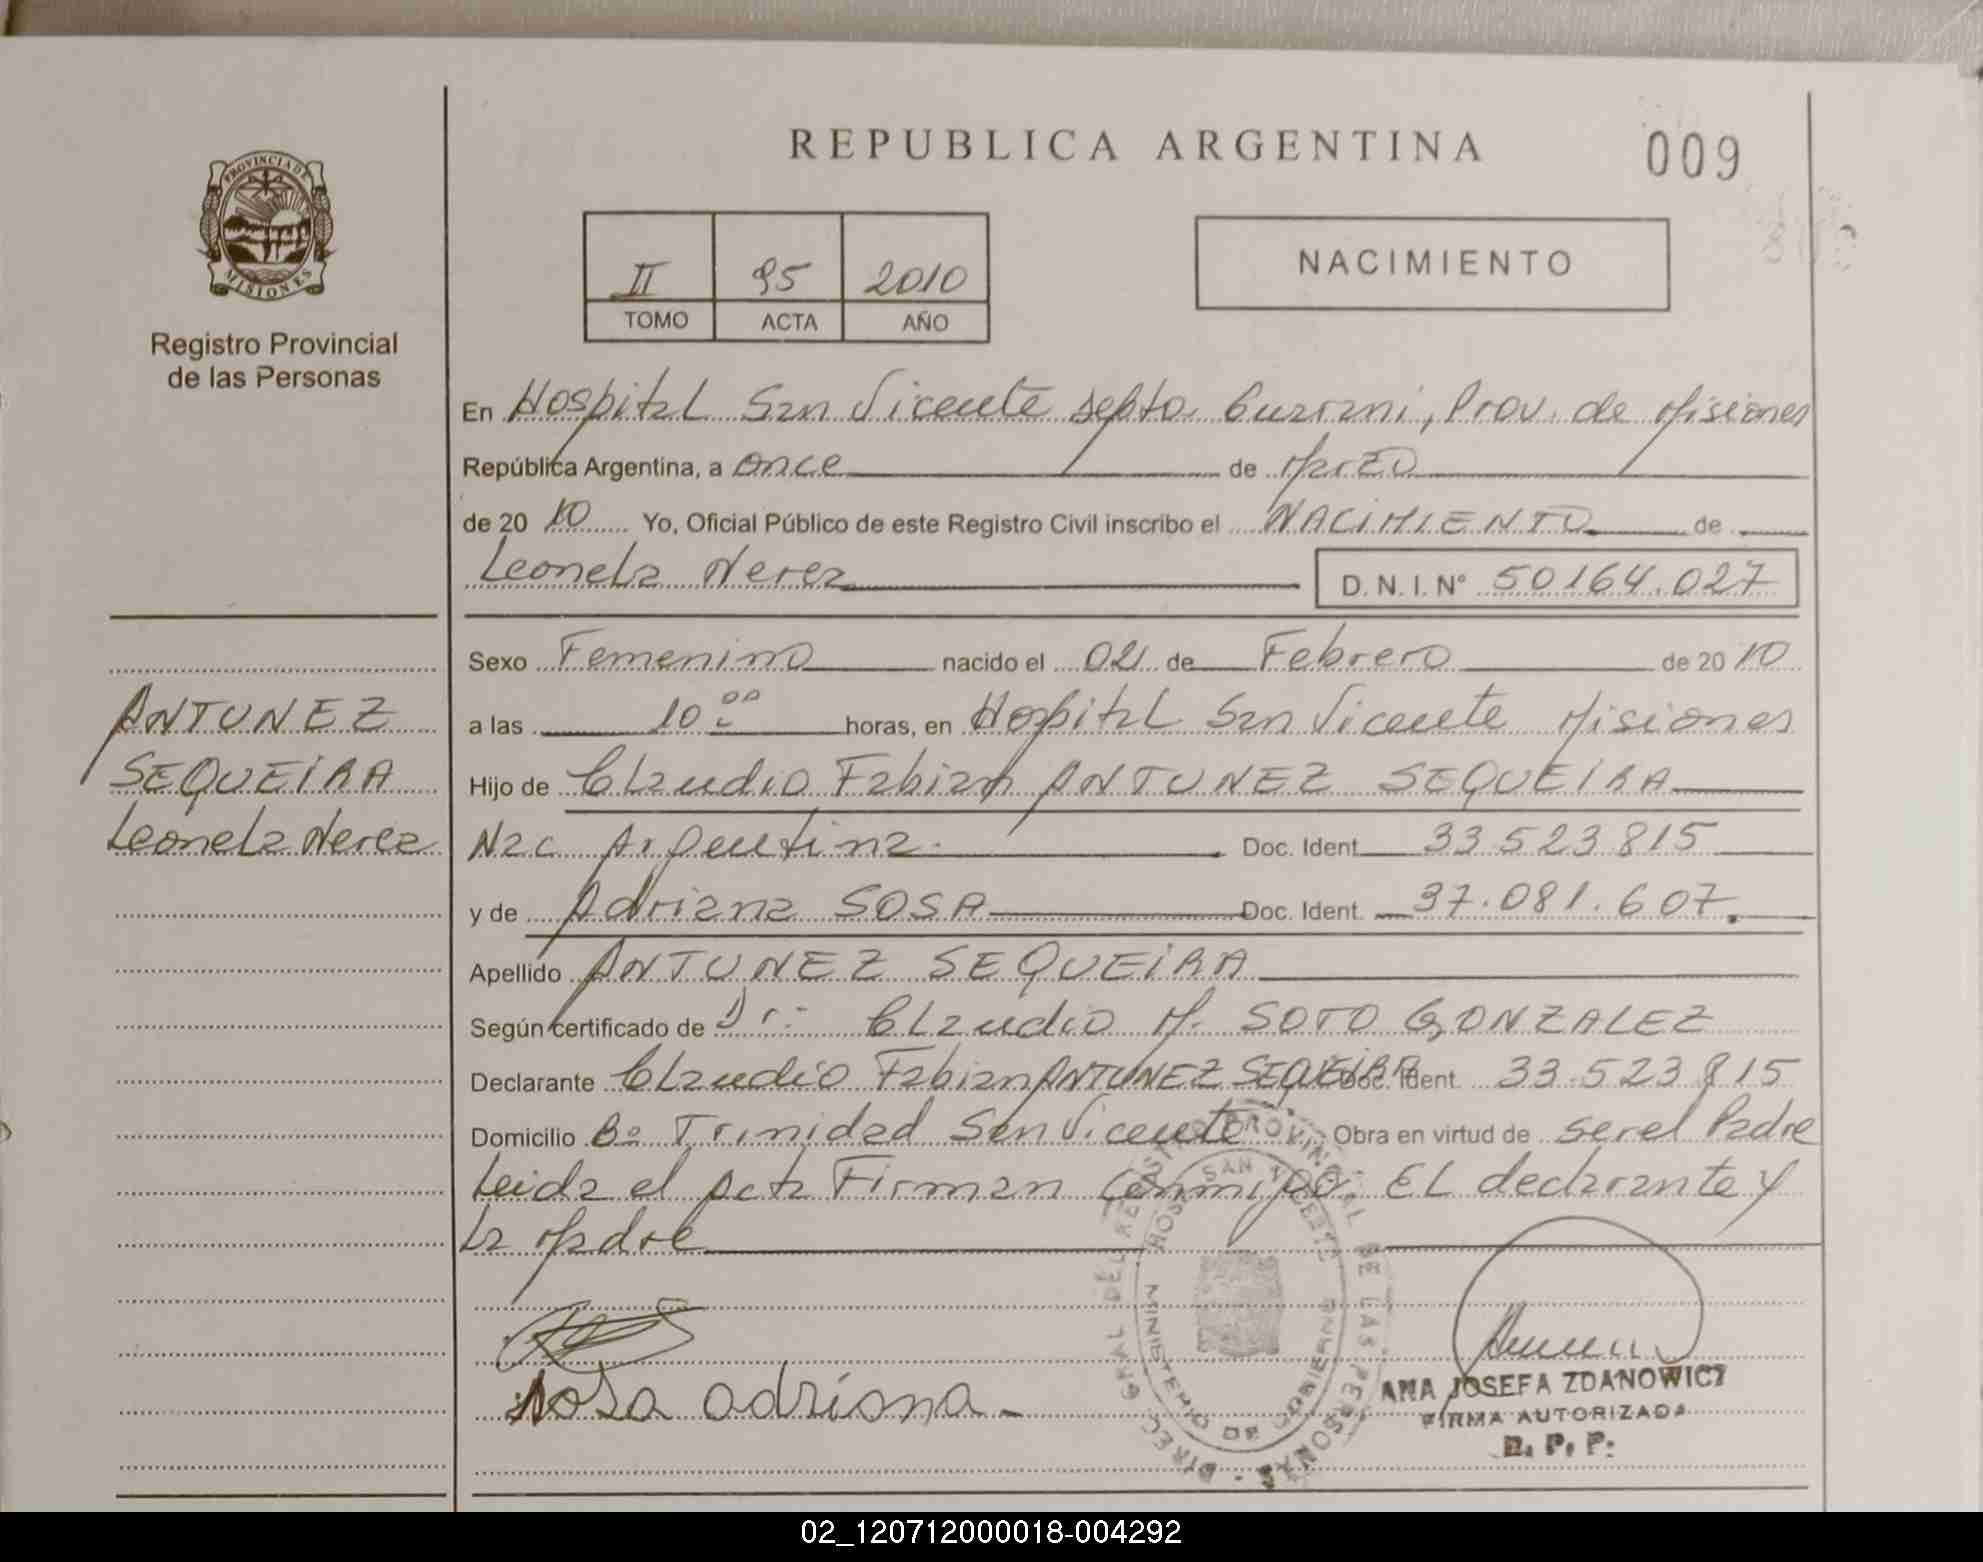 REPUBLICA ARGENTINA
009
PROVINCIA DE
MISIONES
Registro Provincial
de las Personas
II 95 2010
TOMO ACTA AÑO
NACIMIENTO
En Hospital San Vicente Depto. Guarani, Prov. de Misiones
República Argentina, a once de Marzo
de 2010 Yo, Oficial Público de este Registro Civil inscribo el NACIMIENTO de
Leonela Nerea
D. N. I. N° 50164.027
Sexo Femenino nacido el 02 de Febrero de 2010
a las 10 00 horas, en Hospital San Vicente Misiones
Hijo de Claudio Fabian ANTUNEZ SEQUEIRA
Nac Argentina. Doc. Ident. 33523815
y de Adriana SOSA Doc. Ident. 37.081.607.
Apellido ANTUNEZ SEQUEIRA
Según certificado de Dr: Claudio M. SOTO GONZALEZ
Declarante Claudio Fabian ANTUNEZ SEQUEIRA Doc. Ident. 33.523815
Domicilio B° Trinidad San Vicente Obra en virtud de ser el Padre
Leida el Acta Firman Conmigo EL declarante y
La Madre
ANTUNEZ
SEQUEIRA
Leonela Nerea
sosa adriana.
DIREC GRAL DEL REGISTRO PROVINCIAL DE LAS PERSONAS
HOSP. SAN VICENTE
MINISTERIO DE GOBIERNO
ANA JOSEFA ZDANOWICZ
FIRMA AUTORIZADA
R. P. P.
02_120712000018-004292